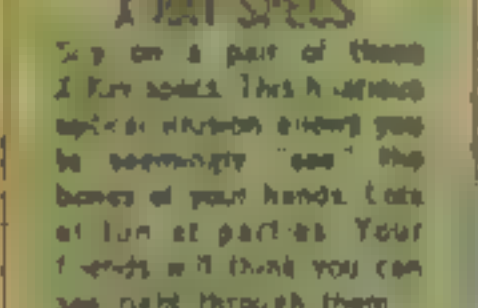 X RAY SPECS
on a pair of these
X Ray specs. This
optical illusion you
to seemingly "see" the
bones of your hands. Lots
of fun at parties. Your
friends will think you can
see right through them